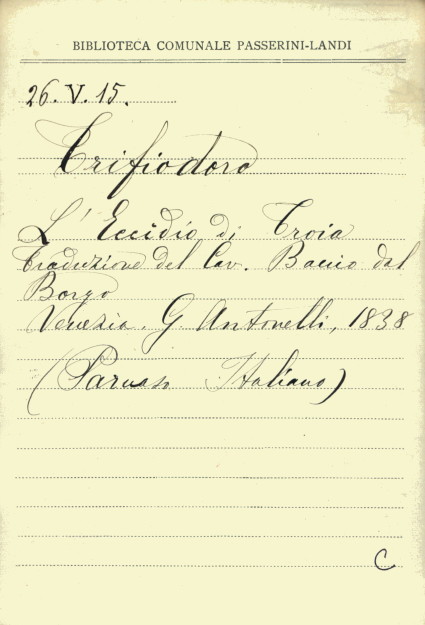 BIBLIOTECA COMUNALE PASSERINI-LANDI
26.V.15.
Trifiodoro
L'Eccidio di Troia
Traduzione del Cav. Baccio dal
Borgo
Venezia. G Antonelli, 1838
(Parnaso Italiano)
C